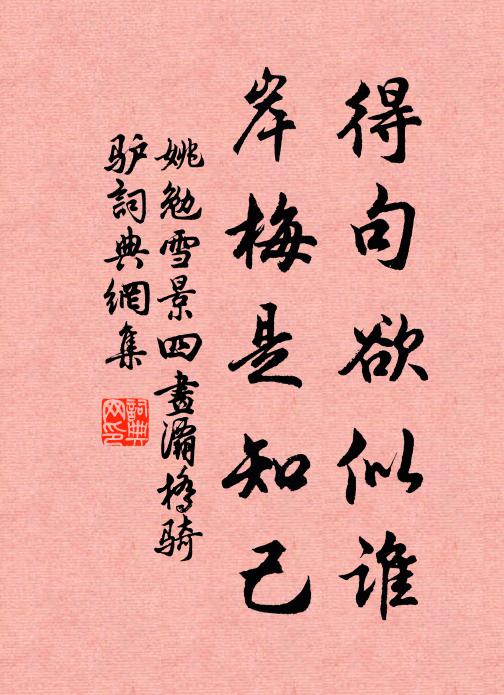 得句欲似谁
岸梅是知己
姚勉雪景四画灞桥骑
驴词典网集
詞典
网印